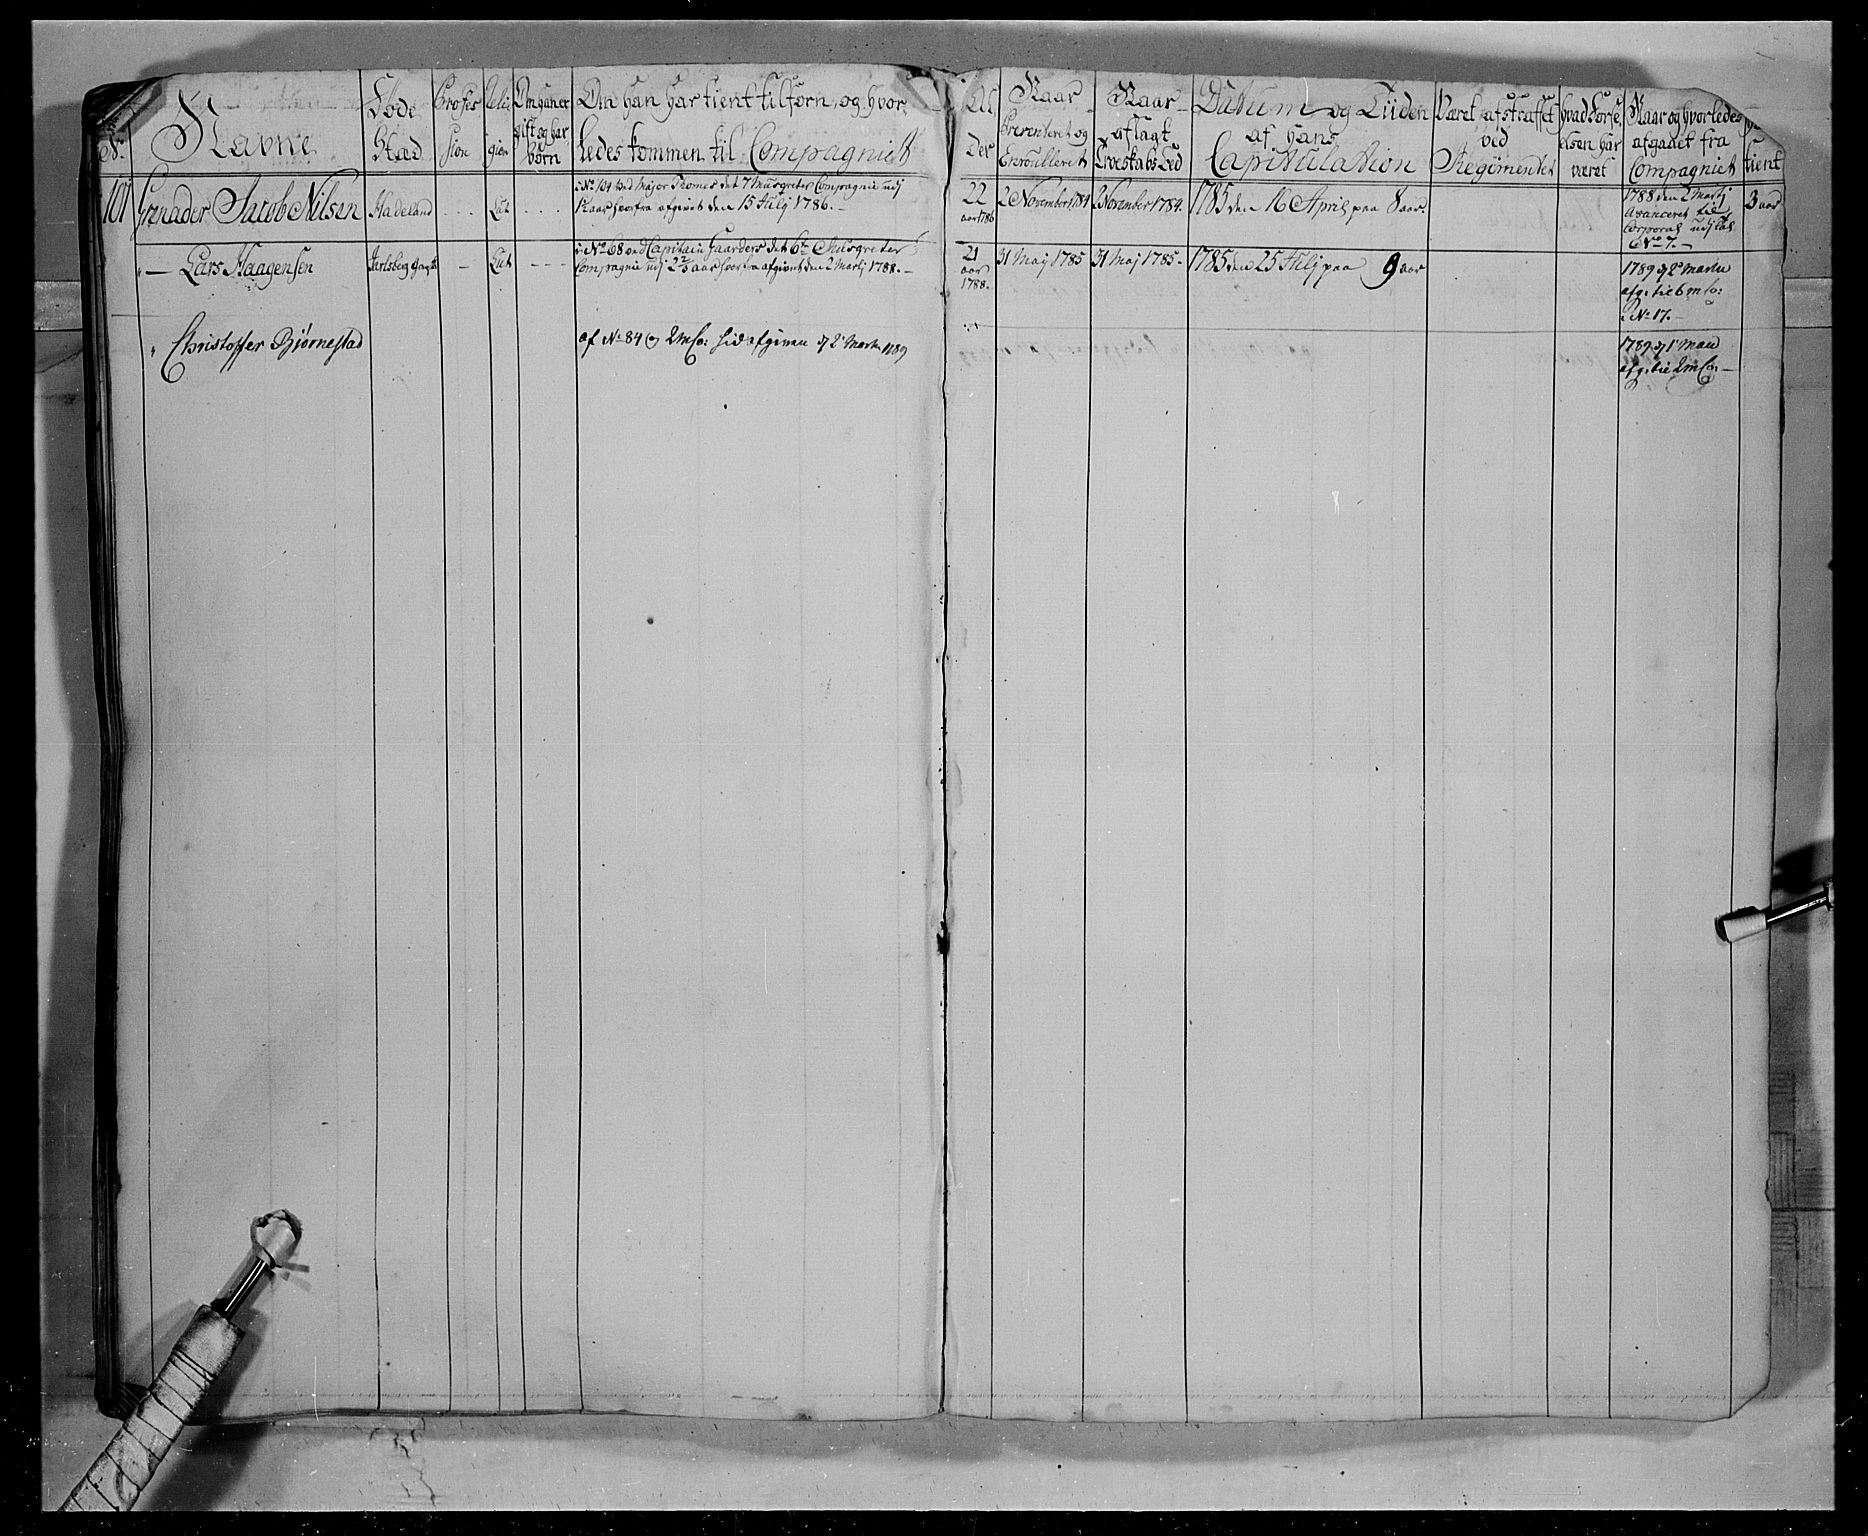 No
Navne
Føde
Stad
Profes
sion
Reli
gion
Om han er
gift og har
børn
Om han har tient tilforn, og hvor
ledes kommen til Compagniet
Al
der
Naar
Presenteret og
Enroulleret
Naar
aflagt
Troeskabs Eed
Datum og Tiiden
af hans
Capitulation
Været afstraffet
ved
Regimentet
hvad forse
elsen har
været
Naar og hvorledes
afgaaet fra
Compagniet
tient
101
Grenader Jacob Nilsen
Hadeland
Lut
i No 104 ved Major Thomes det 7 Musqreter Compagnie udj
aar hvorfra afgivet den 15 Julj 1786. –
22
aar 1786
2 November 1784
2 November 1784.
1785 den 16 April paa 8 aar.
1788 den 2 Martj
Avanceret til
Corporal udj
No 7. –
3 aar
" — Lars Haagensen
Jarlsberg
–
Lut
– – –
i No 68 ved Capitain Gaarders det 6te Musqreter
Compagnie udj 2 2/3 aar hvorfra afgivet den 2 Martj 1788. –
21
aar
1788.
31 Maj 1785
31 Maj 1785 –
1785 den 25 Julj paa 9 aar
1789 d 2 Martii
afg: til 6 m Co:
No 17. –
" Christoffer Bjørnestad
af No 84 2 m Co: hid afgiven d 2 Martii 1789
1789 d 1
afg: til 2 m Co: –